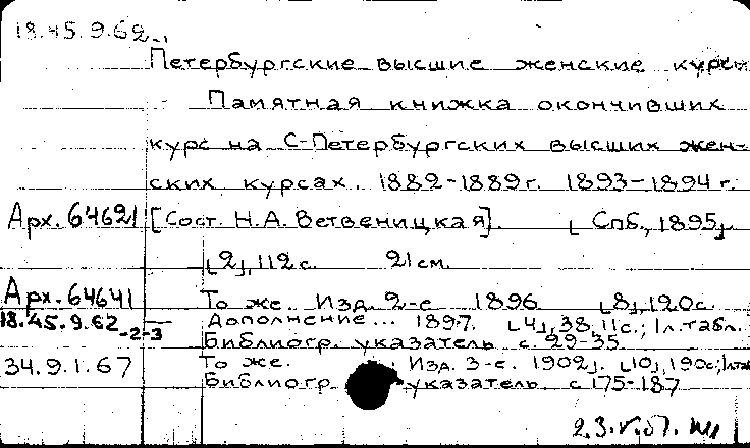 18.45.9.62
Петербургские высшие женские курсы
Памятная книжка окончивших
курс на С-Петербургских высших жен-
ских курсах. 1882-1889 г. 1893-1894 г.
Арх. 64621 [Сост. Н.А. Ветвеницкая]. [Спб., 1895].
[2], 112 с. 21 см.
Арх. 64641 То же. Изд. 2-е 1896 [8], 120 с.
18.45.9.62-2-3 Дополнение... 1897. [4], 38, 11 с.; 1 л. табл.
Библиогр. указатель с. 29-35.
34.9.1.67 То же. Изд. 3-е. 1902]. [10], 190 с; 1 л. таб
Библиогр. указатель с 175-187
2.3.V.67.